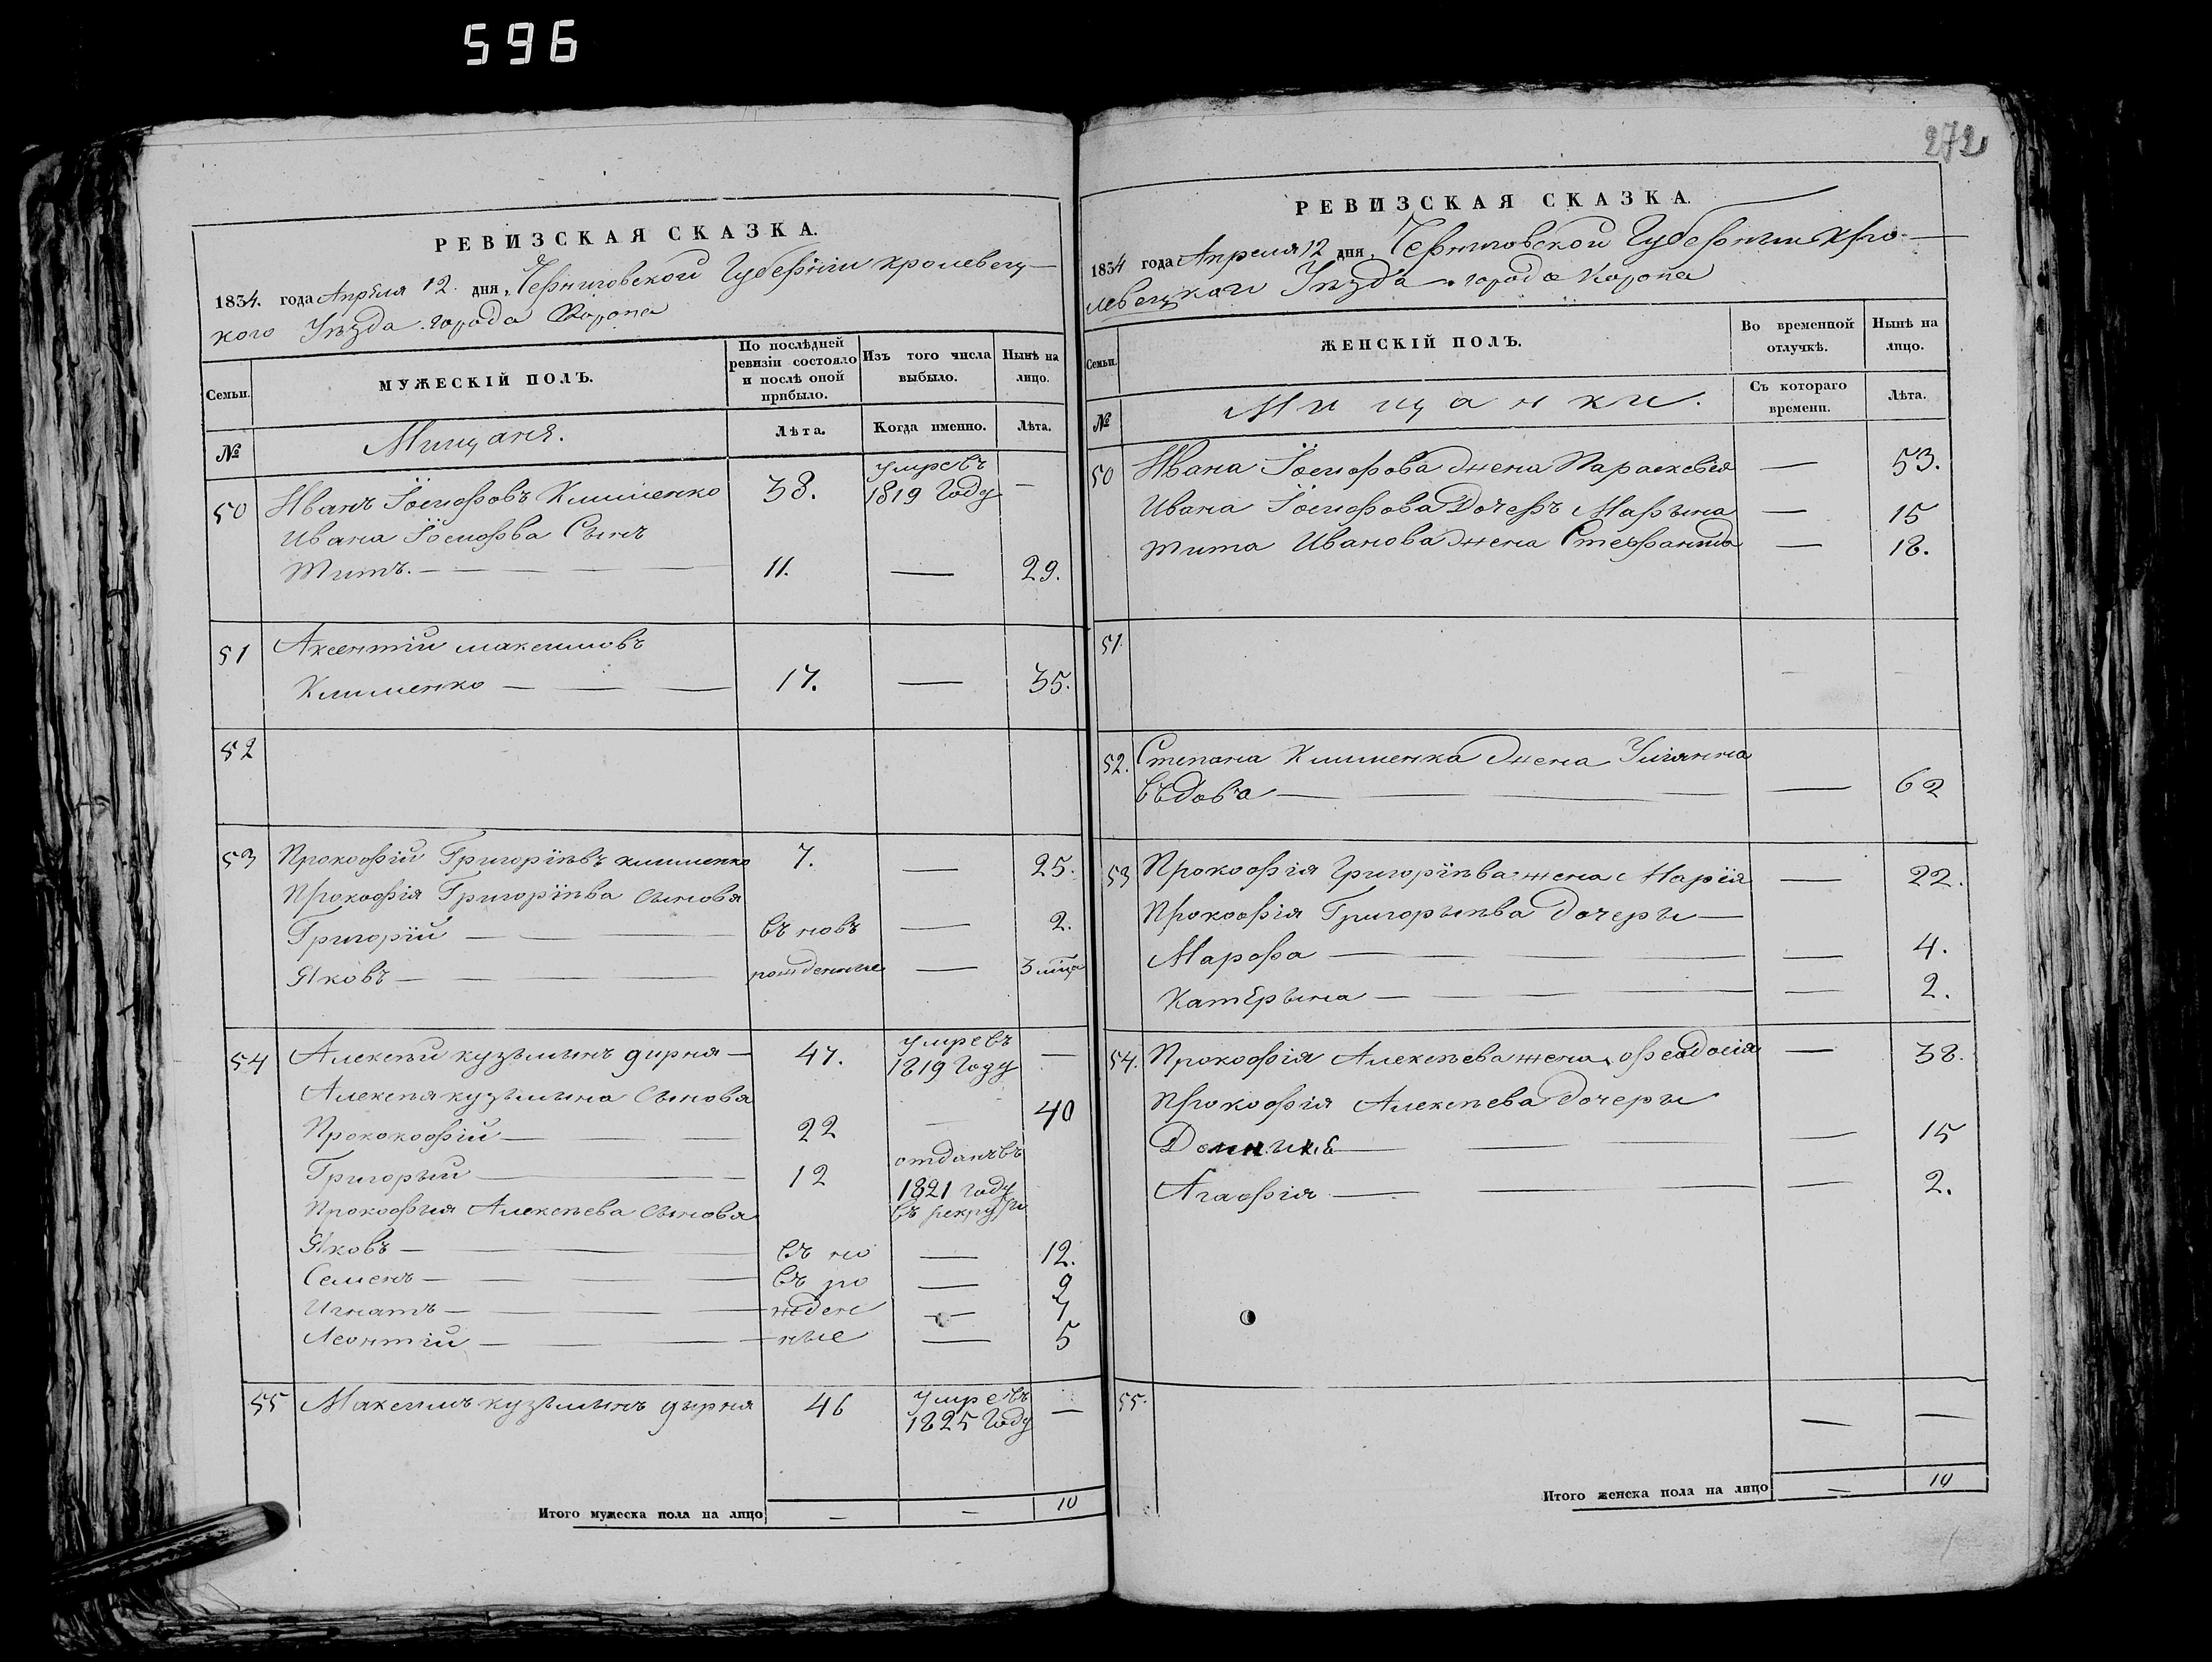 596
РЕВИЗСКАЯ СКАЗКА.
1834. года Апреля 12. дня, Черниговской Губернiи кролевец
кого Уѣзда города Коропа
Семьи.
МУЖЕСКІЙ ПОЛЪ.
По послѣдней
ревизіи состояло
и послѣ оной
прибыло.
Изъ того числа
выбыло.
Нынѣ на
лицо.
№
Мищаня.
Лѣта.
Когда именно.
Лѣта.
50 Иванъ Іосифовъ Клименко 38. умре въ
1819 Году —
Ивана Іосифва Сынъ
Титъ. — 11. — 29.
51 Аксентій максимовъ
Клименко — 17. — 35.
52
53 Прокофій Григорїевъ клименко 7. — 25.
Прокофія Григорїева сыновя
Григорїй — въ новъ — 2.
Яковъ — рожденные — 3 мца
54 Алексѣй кузьминъ дирня — 47. умре въ
1819 Году —
Алексѣя кузьмина сыновя
Прококофій — 22 — 40
Григорый — 12 отданъ въ
1821 году
въ рекруты
Прокофыя Алексѣева сыновя
Яковъ — въ но — 12.
Семенъ — въ ро — 9
Игнатъ — жден — 7
Леонтій — ные — 5
55 Максимъ кузьминъ дырня 46 умре въ
1825 Году —
Итого мужеска пола на лицо — — 10
272
РЕВИЗСКАЯ СКАЗКА.
1834 года Апреля 12 дня, Черниговской Губернии Кро
левецкаги Уѣзда города Коропа
Семьи.
ЖЕНСКІЙ ПОЛЪ.
Во временной
отлучкѣ.
Нынѣ на
лицо.
№
Мищанки.
Съ котораго
времени.
Лѣта.
50 Ивана Іосифова жена Параскевїя — 53.
Ивана Іосифова Дочеръ Марына — 15
Тита Иванова жена Стефанида — 18.
51.
52. Степана Клименка жена Улiянна
въдова — — 62
53 Прокофія Григорїева жена Марїя — 22.
Прокофія Григорьева дочеры —
Марфа — — 4.
КатЕрына — — 2.
54. Прокофія Алексѣева жена феодосія — 38.
Прокофія Алексѣева дочеры
Домникѣ — — 15
Агафія — — 2.
55. — —
Итого женска пола на лицо — 10